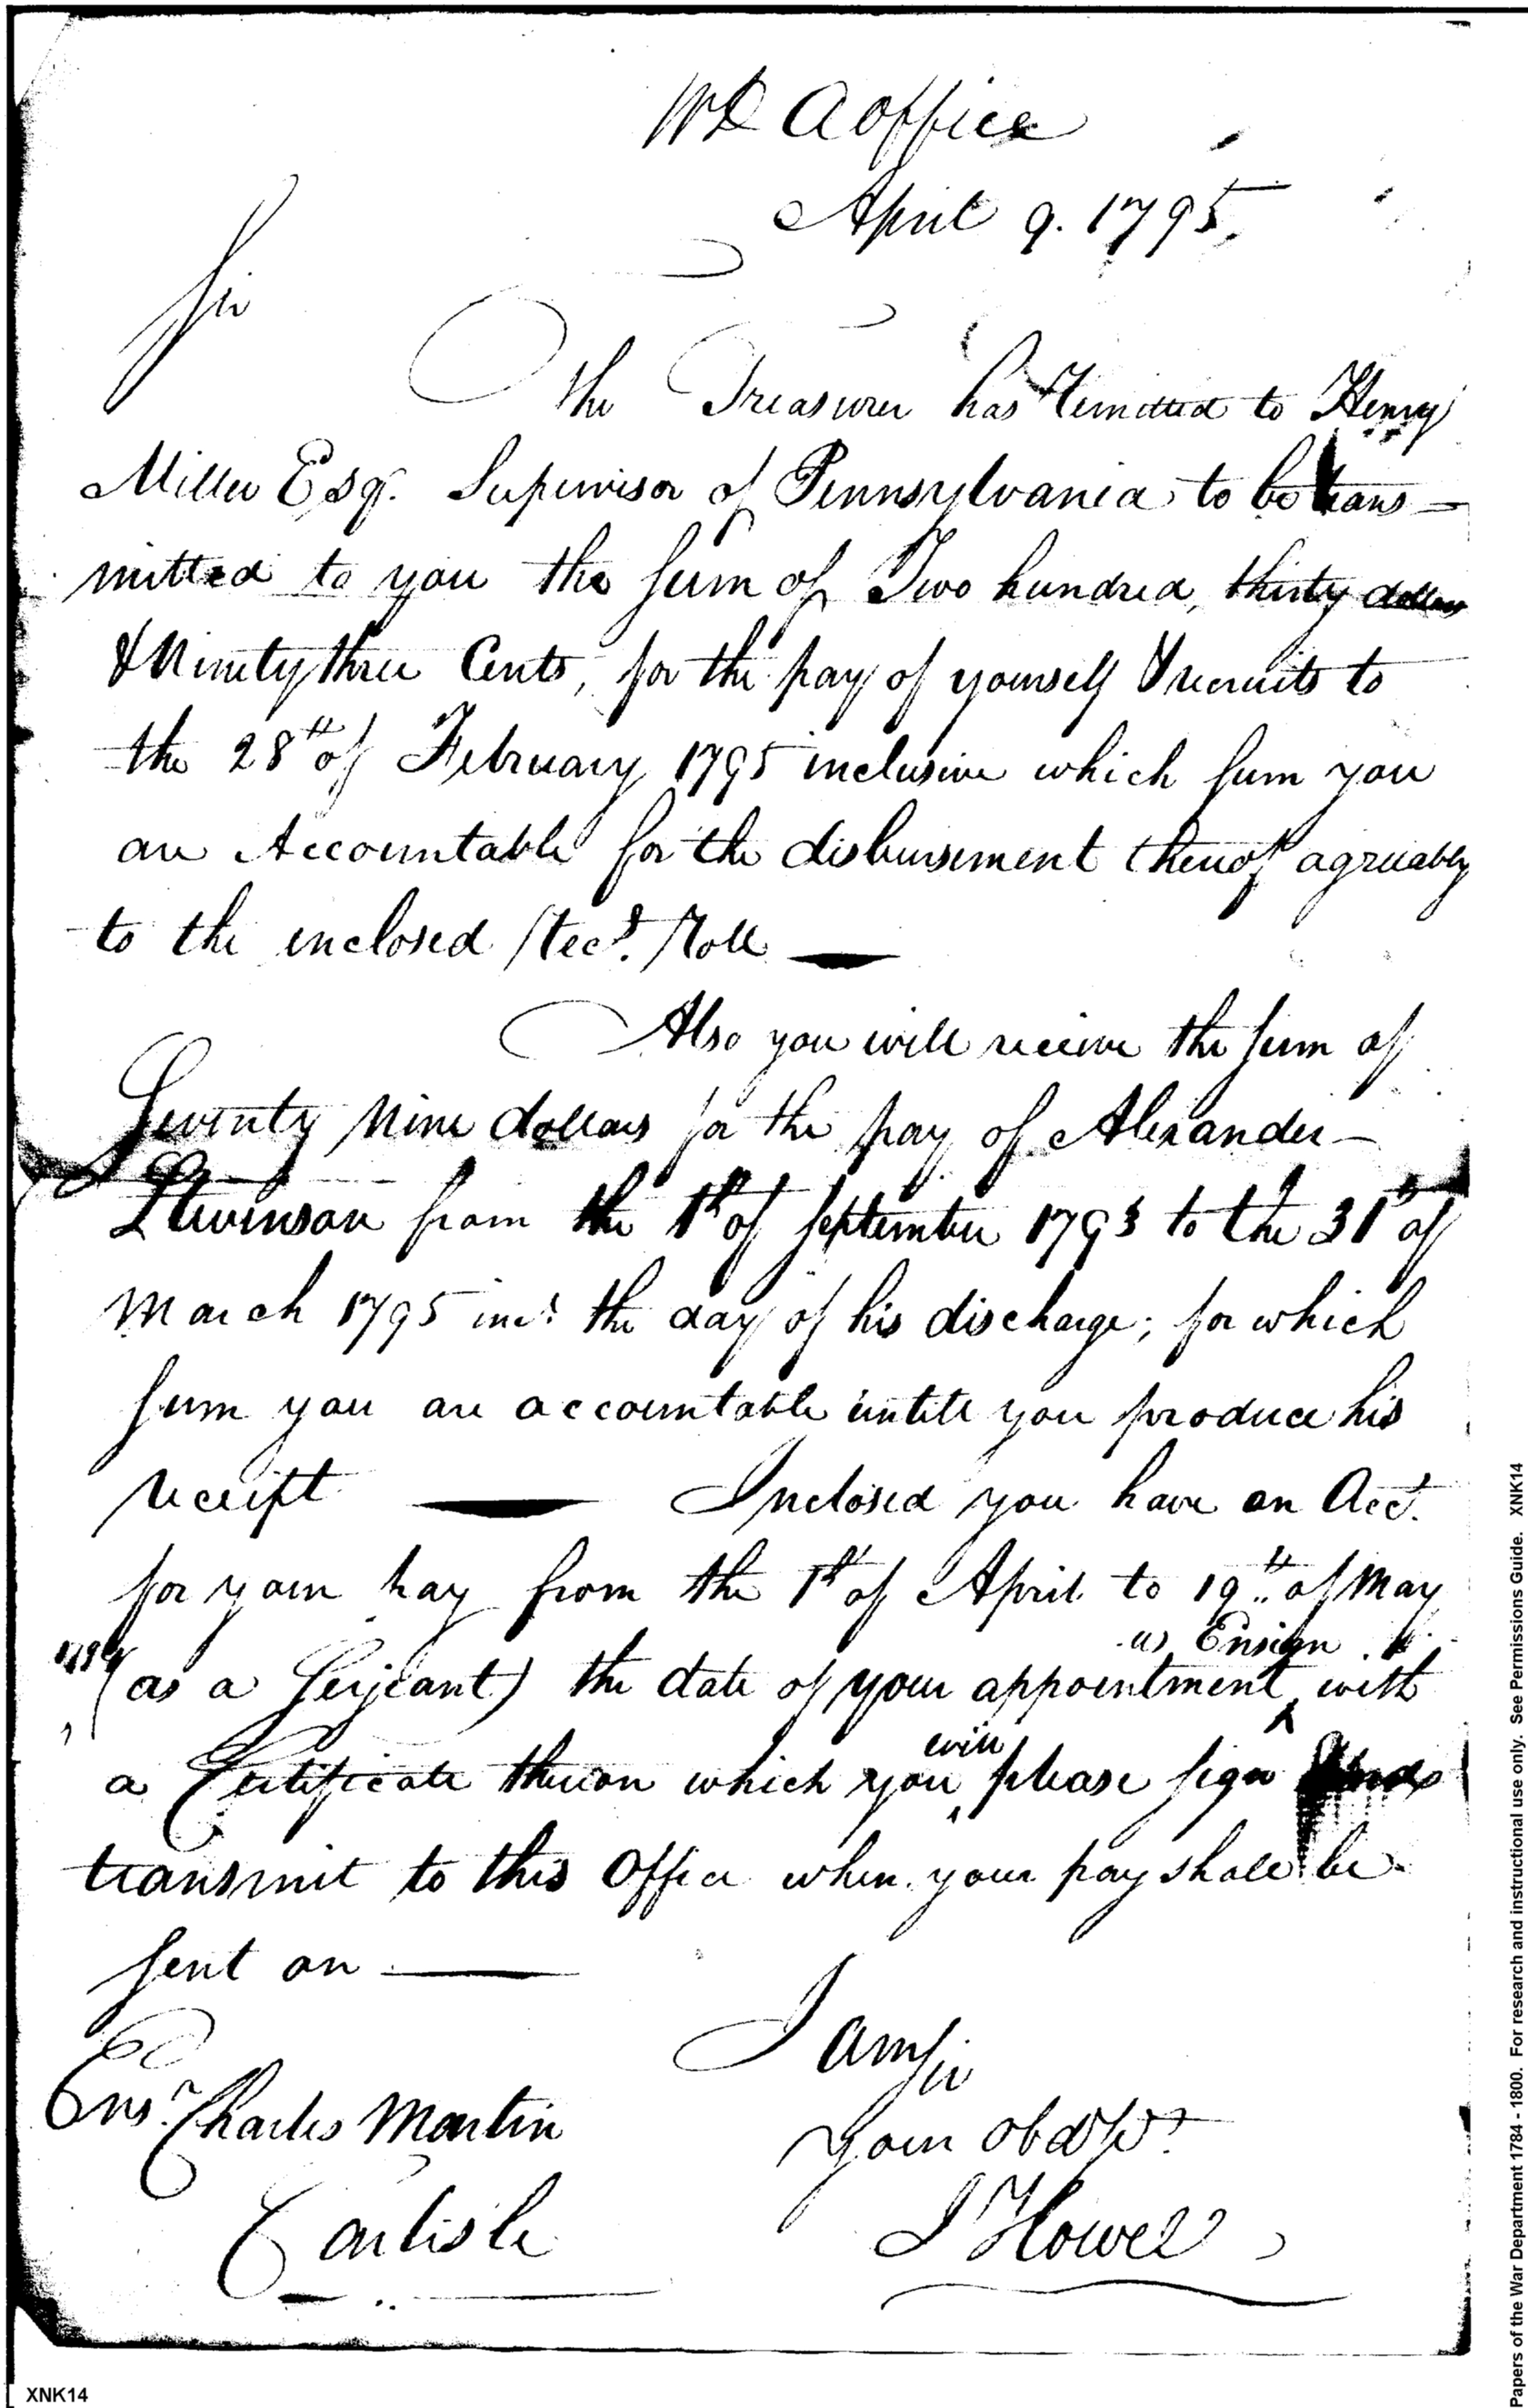 WD A office
April 9. 1795.
Sir
The Treasurer has remitted to Henry
Miller Esqr. Supervisor of Pennsylvania to be trans-
mitted to you the sum of Two hundred, thirty dollars
& Ninety three Cents, for the pay of yourself & recruits to
the 28th of February 1795 inclusive which sum you
are Accountable for the disbursement thereof agreeably
to the enclosed Rect. Roll
Also you will receive the sum of
Seventy Nine dollars for the pay of Alexander-
Stevenson from the 1st of September 1793 to the 31st of
March 1795 incl. the day of his discharge; for which
sum you are accountable untill you produce his
receipt Inclosed you have an Acct.
for your pay from the 1st of April to 19th of May
as Ensign
1794 (as a Serjeant) the date of your appointment ^ with
will
a Certificate thereon which you ^ please sign and
transmit to this Office when your pay shall be
sent on
I am Sir
Ens. Charles Martin
Your Obd Sr.
Carlisle
J Howell
XNK14
Papers of the War Department 1784 - 1800. For research and instructional use only. See Permissions Guide. XNK14